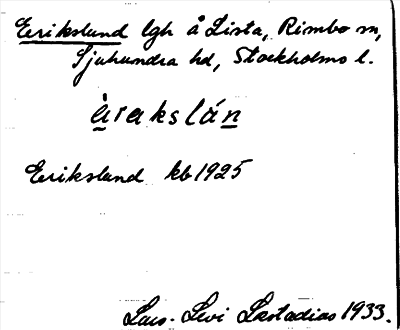 Erikslund lgh å Lista, Rimbo sn,
Sjuhundra hd, Stockholms l.
àrakslán
Erikslund kb 1925
Lars-Levi Læstadius 1933.